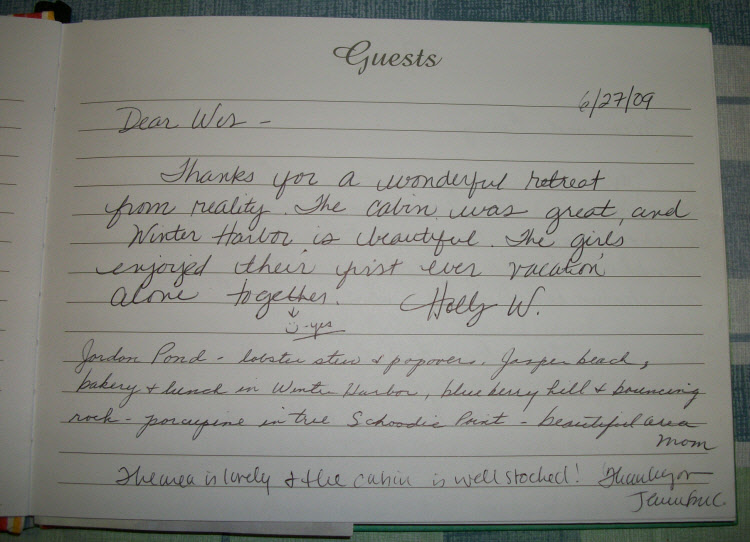 Guests
6/27/09
Dear Wes -
Thanks for a wonderful retreat
from reality. The cabin was great, and
Winter Harbor is beautiful. The girls
enjoyed their first ever vacation
alone together. Holly W.
-yes
Jordon Pond - lobster stew & popovers. Jasper beach,
bakery + lunch in Winter Harbor, blueberry hill & bouncing
rock - porcupine in tree Schoodic Point - beautiful area
Mom
The area is lovely & the cabin is well stocked! Thank you